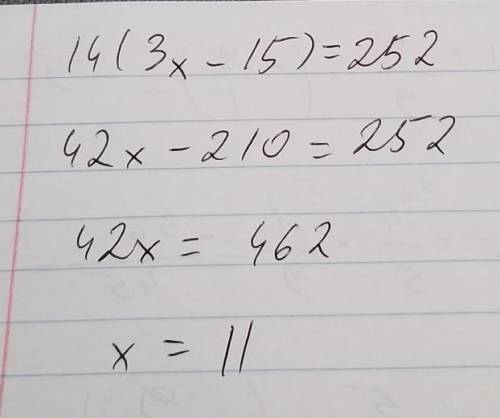 14(3x-15)=252
42x-210=252
42x=462
x=11